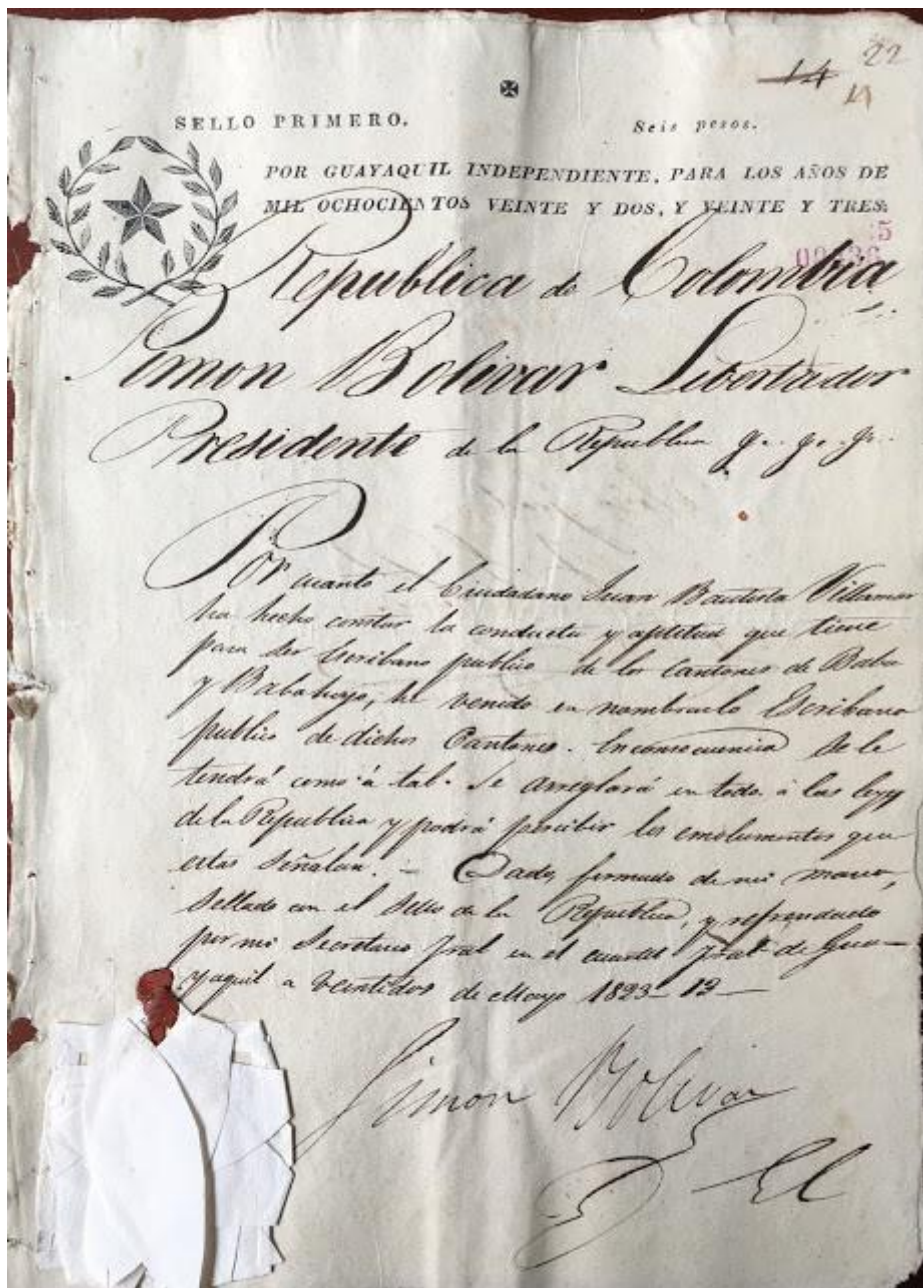 22
14
SELLO PRIMERO.
Seis pesos.
POR GUAYAQUIL INDEPENDIENTE, PARA LOS AÑOS DE
MIL OCHOCIENTOS VEINTE Y DOS, Y VEINTE Y TRES.
Republica de Colombia
Simon Bolivar Libertador
Presidente de la Republica
Por cuanto el Ciudadano Juan Bautista Villamar
ha hecho constar la conducta y aptitud que tiene
para ser Escribano publico de los Cantones de Baba
y Babahoyo, he venido en nombrarlo Escribano
publico de dichos Cantones. En consecuencia se le
tendrá como á tal. Se arreglará en todo á las leyes
de la Republica y podrá percibir los emolumentos que
estas señalan. - Dado, firmado de mi mano,
sellado con el sello de la Republica, y refrendado
por mi Secretario Jral en el cuartel Jral de Gua-
yaquil a veintidos de Mayo 1823-13-
Simon Bolivar